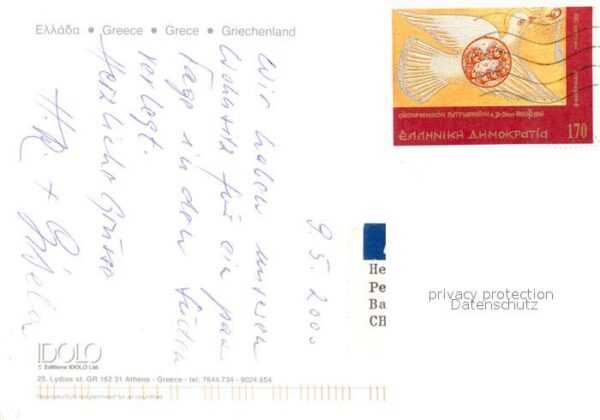 Ελλάδα • Greece • Grèce • Griechenland
ΟΙΚΟΥΜΕΝΙΚΟΝ ΠΑΤΡΙΑΡΧΕΙΟΝ
ΕΛΛΗΝΙΚΗ ΔΗΜΟΚΡΑΤΙΑ 170
9.5.2000
Wir haben unseren
Wohnsitz für ein paar
Tage in den Süden
verlegt.
Herzliche Grüsse
H.R. + Gisela
He
Pe
Ba
CH
privacy protection
Datenschutz
IDOLO
© Editions IDOLO Ltd.
25, Lydias st. GR 162 31 Athens - Greece - tel: 7644.734 - 9024.654
Reproduction not permitted for all countries